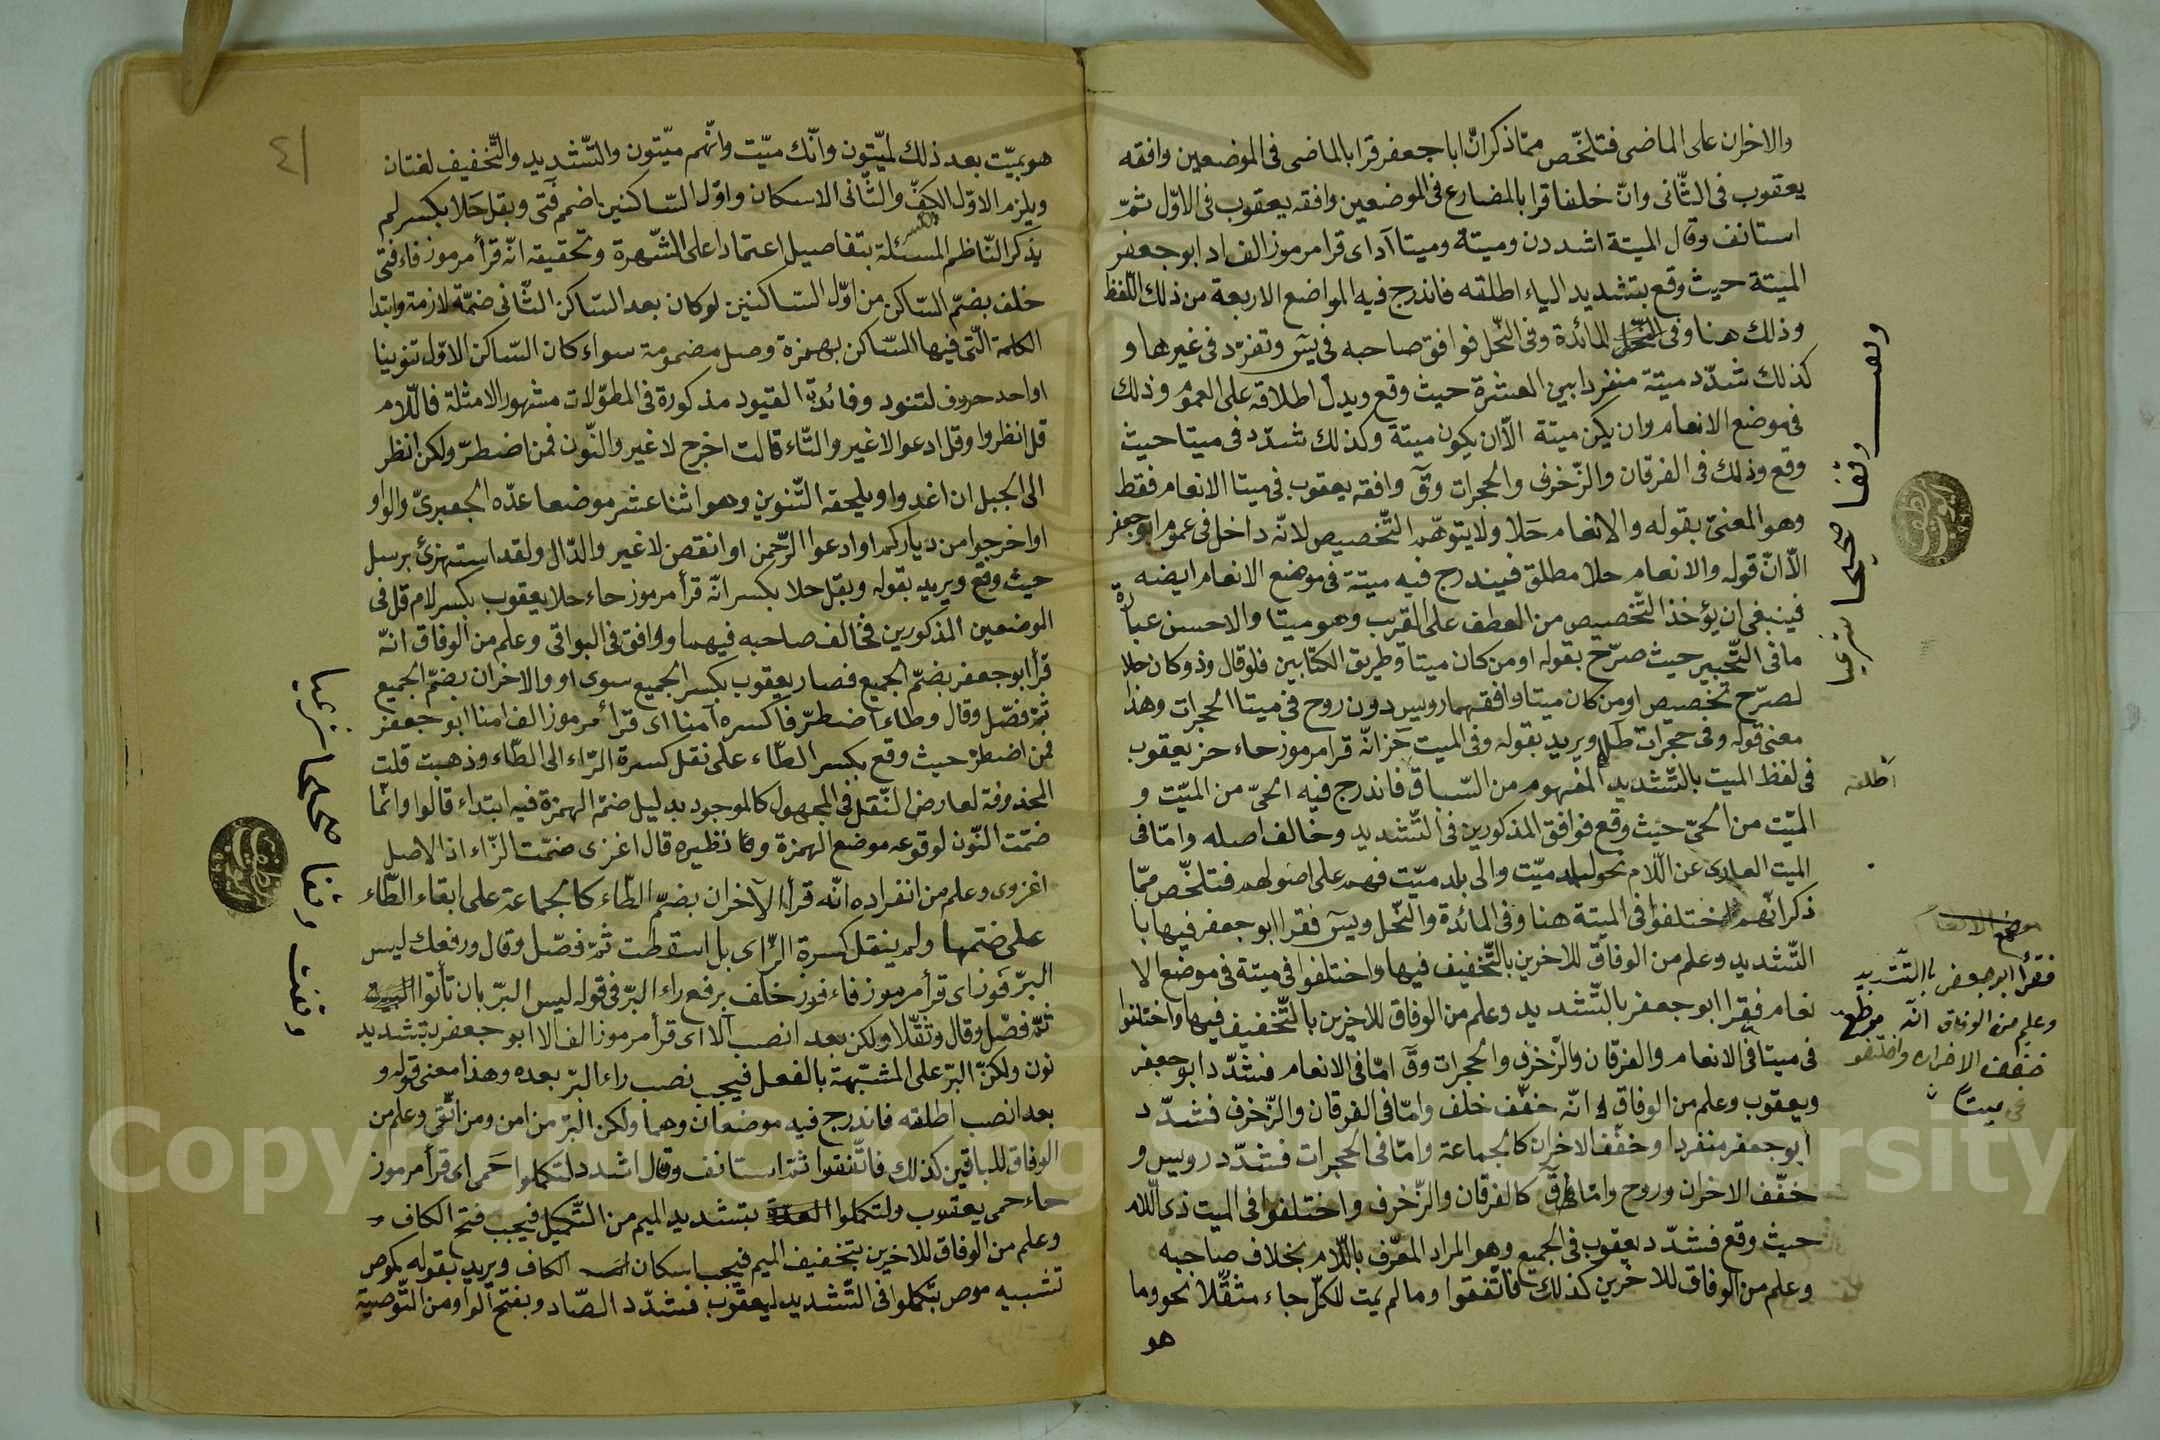 والاخران على الماضى فتلخّص ممّا ذكر انّ ابا جعفر قرا بالماضى فى الموضعين وافقه
يعقوب فى الثّانى وانّ خلفا قرا بالمضارع فى الموضعين وافقه يعقوب فى الاوّل ثمّ
استانف وقال الميتة اشددن وميتة وميتا آد اى قرا مرموز الف اد ابو جعفر
الميتة حيث وقع بتشديد الياء اطلقه فاندرج فيه المواضع الاربعة من ذلك اللّفظ
وذلك هنا وفى المائدة وفى النّحل فوافق صاحبه فى يسٓ وتفرّد فى غيرها و
كذلك شدّد ميتة منفردا بين العشرة حيث وقع ويدلّ اطلاقه على العموم وذلك
فى موضع الانعام وان يكن ميتة الّا ان يكون ميتة وكذلك شدّد فى ميتا حيث
وقع وذلك فى الفرقان والزّخرف والحجرات وقٓ وافقه يعقوب فى ميتا الانعام فقط
وهو المعنىّ بقوله والانعام حَلا ولا يتوهّم التّخصيص لانّه داخل فى عموم ابو جعفر
الّا انّ قوله والانعام حلا مطلق فيندرج فيه ميتة فى موضع الانعام ايضه
فينبغى ان يؤخذ التّخصيص من العطف على القريب وهو ميتا والاحسن عبارة
ما فى التّحبير حيث صرّح بقوله اومن كان ميتا وطريق الكتابين فلو قال وذو كان حلا
لصرّح تخصيص اومن كان ميتا وافقهما رويس دون روح فى ميتا الحجرات وهذا
معنى قوله وفى حجرات طل ويريد بقوله وفى الميت حز انّه قرا مرموز حاء حز يعقوب
فى لفظ الميت بالتّشديد المفهوم من السّباق فاندرج فيه الحىّ من الميّت و
الميّت من الحىّ حيث وقع فوافق المذكورين فى التّشديد وخالف اصله وامّا فى
الميت العارى عن اللّام نحو لبلد ميّت والى بلد ميّت فهم على اصولهم فتلخّص ممّا
ذكر انّهم اختلفوا فى الميتة هنا وفى المائدة والنّحل ويسٓ فقرا ابو جعفر فيها با
التّشديد وعلم من الوفاق للاخرين بالتّخفيف فيها واختلفوا فى ميتة فى موضع الا
نعام فقرا ابو جعفر بالتّشديد وعلم من الوفاق للاخرين بالتّخفيف فيها واختلفوا
فى ميتا فى الانعام والفرقان والزّخرف والحجرات وقٓ امّا فى الانعام فشدّد ابو جعفر
ويعقوب وعلم من الوفاق انّه خفّف خلف وامّا فى الفرقان والزّخرف فشدّد
ابو جعفر منفردا وخفّف الاخران كالجماعة وامّا فى الحجرات فشدّد رويس و
خفّف الاخران وروح وامّا قٓ كالفرقان والزّخرف واختلفوا فى الميت ذى اللّام
حيث وقع فشدّد يعقوب فى الجميع وهو المراد المعرّف باللّام بخلاف صاحبه
وعلم من الوفاق للاخرين كذلك فاتّفقوا وما لم يمت للكلّ جاء مثقّلا نحو وما
هو
وقف
اطلقه
فقرأ ابو جعفر بالتّشديد
وعلم من الوفاق انّه
خفّف الاخران واختلفو
فى ميتًا
٤١
هو بميّت بعد ذلك لميّتون وانّك ميّت وانّهم ميّتون والتّشديد والتّخفيف لغتان
ويلزم الاوّل الكسر والثّانى الاسكان واوّل السّاكنين اضمم فتى وبقل حَلا بكسر لم
يذكر النّاظم المسئلة بتفاصيل اعتمادا على الشّهرة وتحقيقه انّه قرأ مرموز فاء فتى
خلف بضمّ السّاكن من اوّل السّاكنين لو كان بعد السّاكن الثّانى ضمّة لازمة وابتدا
الكلمة الّتى فيها السّاكن بهمزة وصل مضمومة سواء كان السّاكن الاوّل تنوينا
او احد حروف لتنود وفائدة القيود مذكورة فى المطوّلات مشهور الامثلة فاللّام
قل انظروا وقل ادعوا لا غير والتّاء قالت اخرج لا غير والنّون فمن اضطرّ ولكن انظر
الى الجبل ان اغدوا ويلحقه التّنوين وهو اثنا عشر موضعا عدّه الجعبرىّ والواو
او اخرجوا من دياركم او ادعوا الرّحمن او انقص لا غير والدّال ولقد استهزئ برسل
حيث وقع ويريد بقوله وبقل حلا بكسر انّه قرأ مرموز حاء حلا يعقوب بكسر لام قل فى
الموضعين المذكورين فخالف صاحبه فيهما ووافق فى البواقى وعلم من الوفاق انّه
قرأ ابو جعفر بضمّ الجميع فصار يعقوب بكسر الجميع سوى او والاخران بضمّ الجميع
ثمّ فصّل وقال وطاء اضطرّ فاكسره آمنا اى قرأ مرموز الف امنا ابو جعفر
فمن اضطرّ حيث وقع بكسر الطّاء على نقل كسرة الرّاء الى الطّاء وذهبت قلت
المحذوفة لعارض النّقل فى المجهول كالموجود بدليل ضمّ الهمزة فيه ابتداء قالوا وانّما
ضمّت النّون لوقوعه موضع الهمزة وفا نظيره قال اغزى ضمّت الزّاء اذ الاصل
اغزوى وعلم من انفراده انّه قرأ الآخران بضمّ الطّاء كالجماعة على ابقاء الطّاء
على ضمّها ولم ينقل كسرة الرّاى بل اسقطت ثمّ فصّل وقال ورفعك ليس
البرّ فوز اى قرأ مرموز فاء فوز خلف برفع راء البرّ فى قوله ليس البرّ بان تأتوا
ثمّ فصّل وقال وثقّلا ولكن بعد انصب آلا اى قرأ مرموز الف الا ابو جعفر بتشديد
نون ولكنّ البرّ على المشبّهة بالفعل فيجب نصب راء البرّ بعده وهذا معنى قوله و
بعد انصب اطلقه فاندرج فيه موضعان وهما ولكن البرّ من امن ومن اتّقى وعلم من
الوفاق للباقين كذلك فاتّفقوا ثمّ استانف وقال اشدد لتكملوا حَمى اى قرأ مرموز
حاء حمى يعقوب ولتكملوا العدة بتشديد الميم من التّكميل فيجب فتح الكاف
وعلم من الوفاق للاخرين بتخفيف الميم فيجب اسكان الكاف ويريد بقوله كموص
تشبيه موص بتكملوا فى التّشديد ليعقوب فشدّد الصّاد وبفتح الواو من التّوصية
Copyright © King Saud University